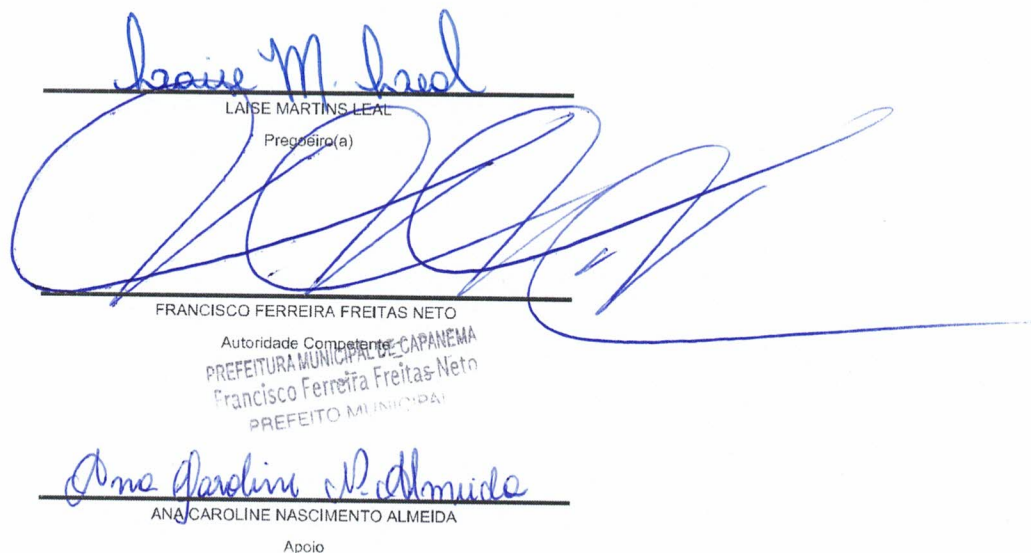 Laise M. Leal
LAISE MARTINS LEAL
Pregoeiro(a)
FRANCISCO FERREIRA FREITAS NETO
Autoridade Competente
PREFEITURA MUNICIPAL DE CAPANEMA
Francisco Ferreira Freitas Neto
PREFEITO MUNICIPAL
Ana Caroline N. Almeida
ANA CAROLINE NASCIMENTO ALMEIDA
Apoio